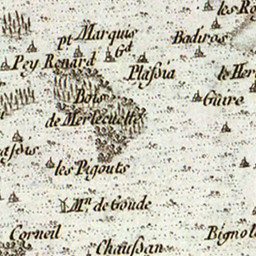 les Ro
pt Marquis
Gd
Badiros
Pey Renard
Plassia
le Her
Bois
de Merlecuette
Guire
assis
les Pigouts
Mn de Goude
Corneil
Chaussan
Bignol